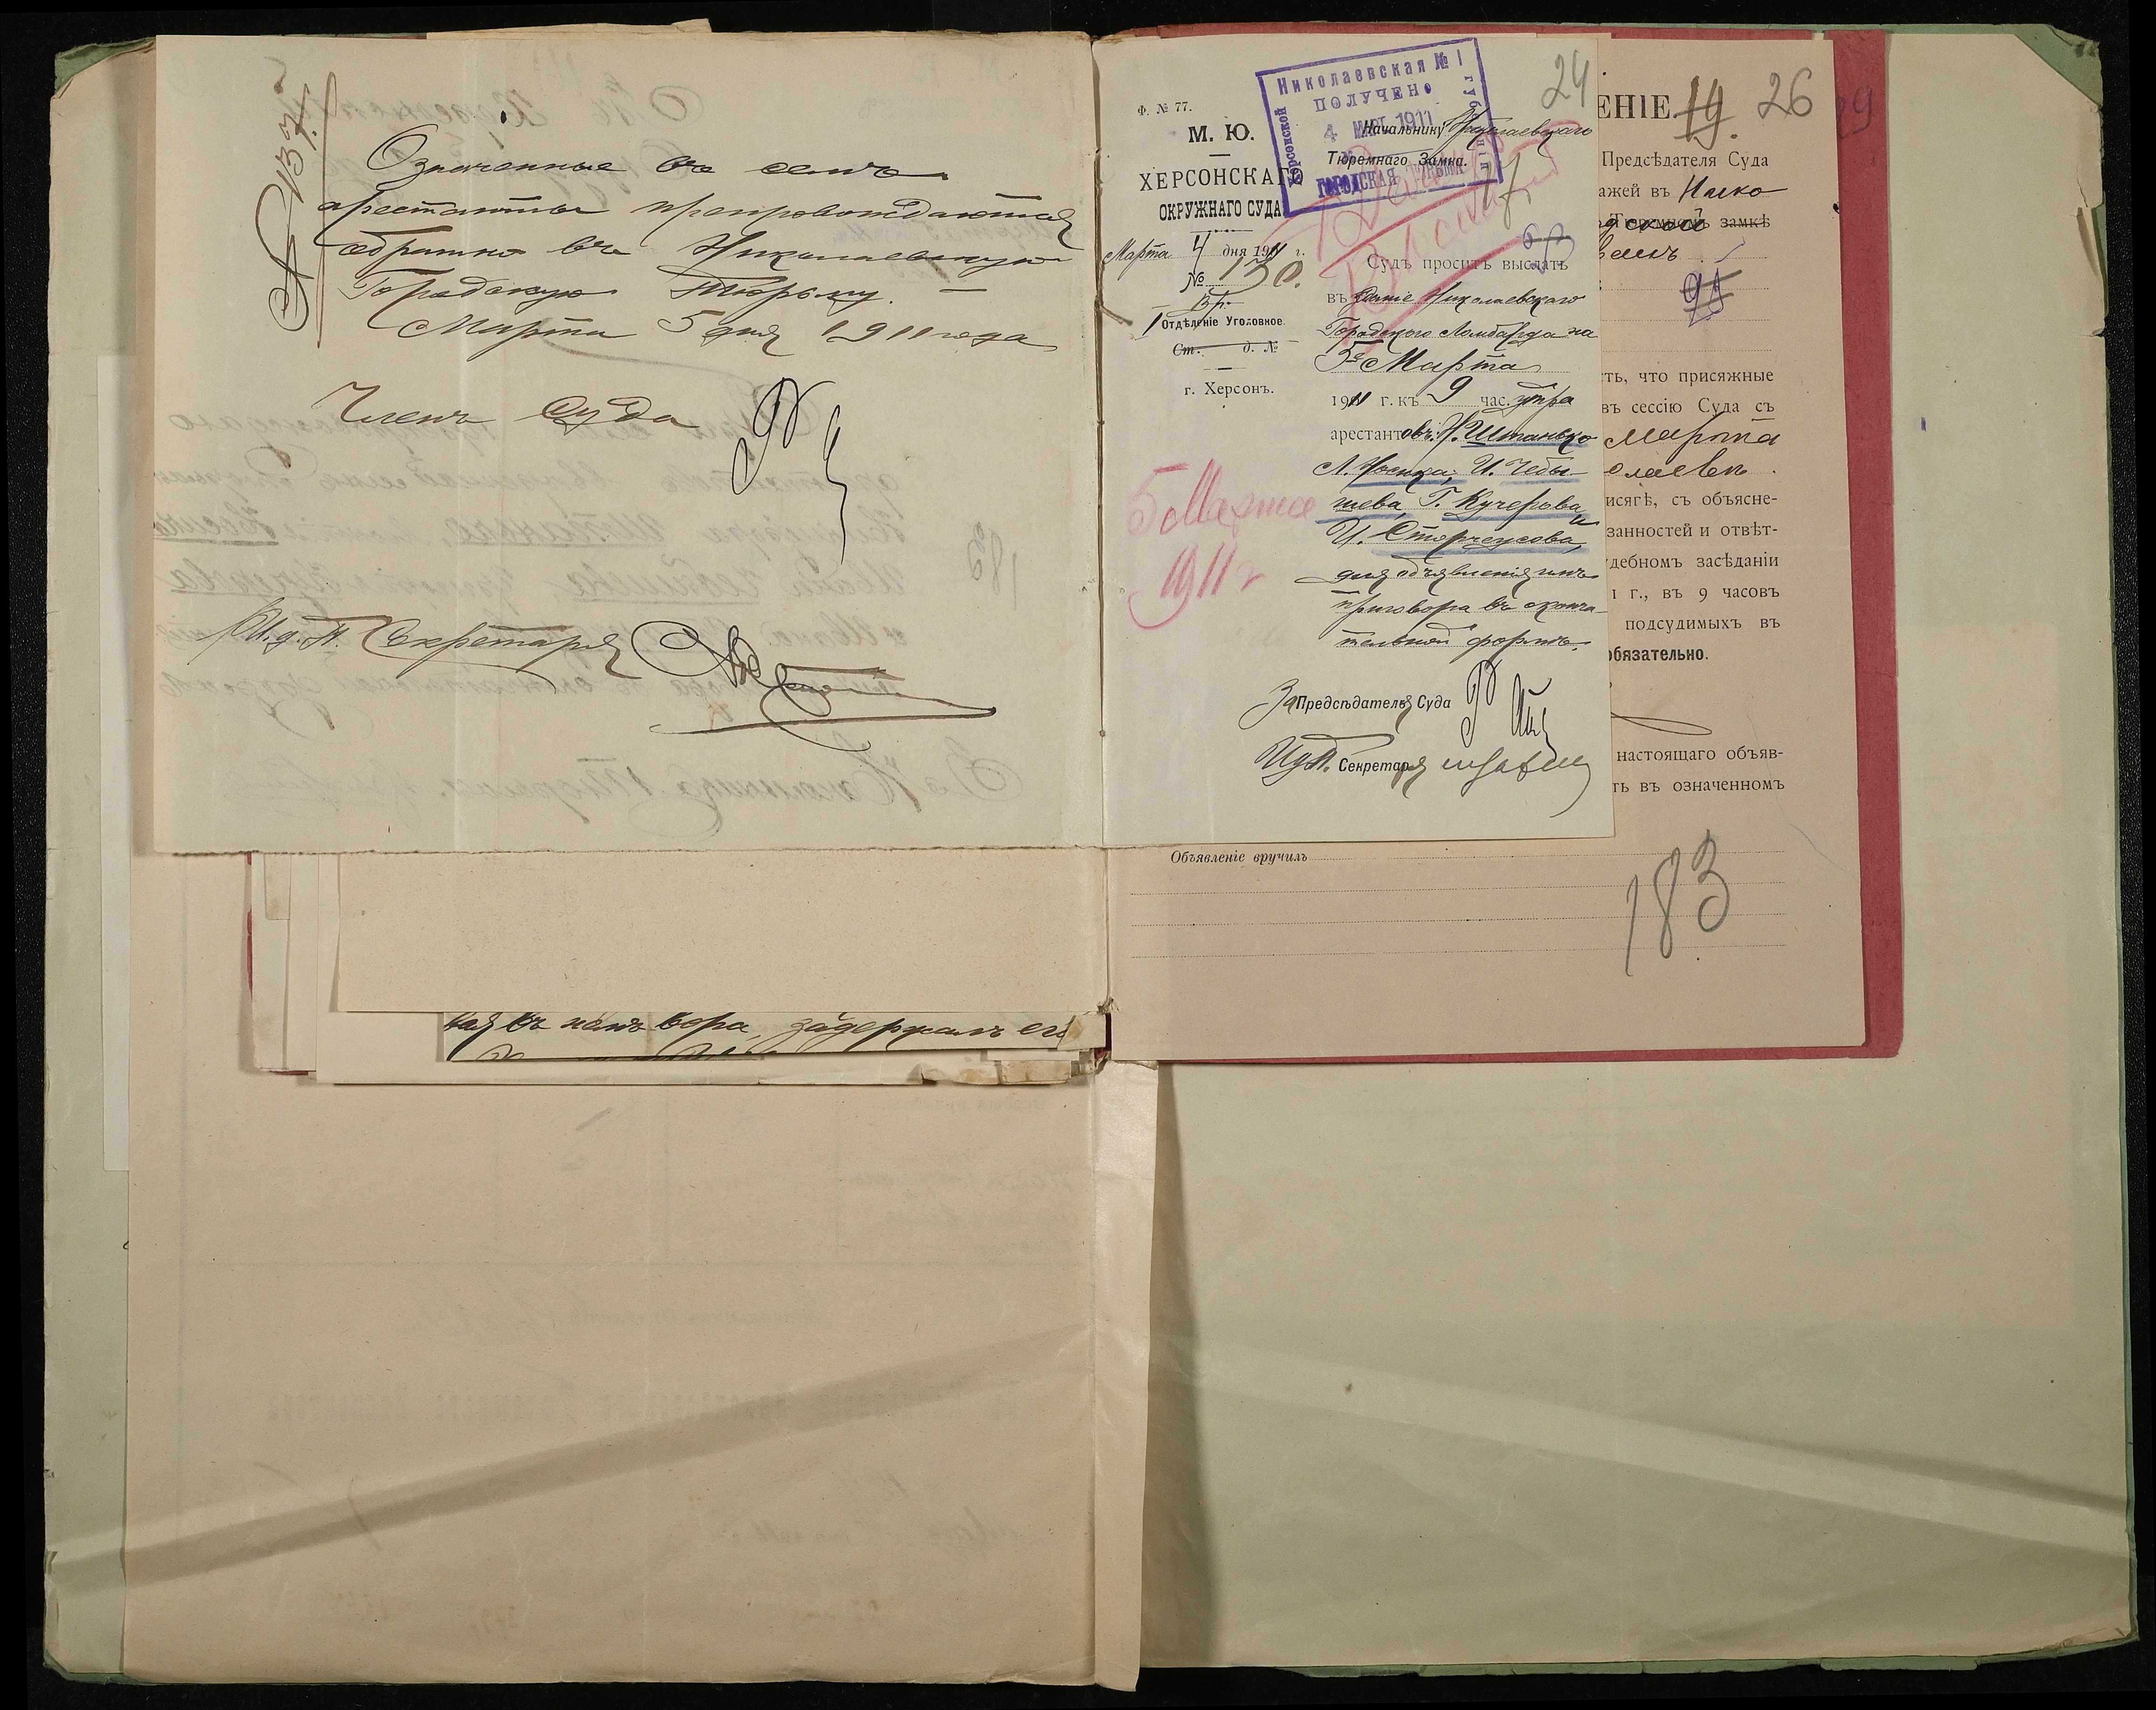 № 137.
Означенные въ семъ
арестанты препровождаются
обратно въ Николаевскую
Городскую Тюрьму. —
Марта 5 дня 1911 года
Членъ Суда
И. д. П. Секретаря
кая въ немъ вора, задержалъ его
24
Ф. № 77.
М. Ю.
ХЕРСОНСКАГО
ОКРУЖНАГО СУДА
Марта 4 дня 1911 г.
№ 130.
Отдѣленіе Уголовное
Ст. д. №
г. Херсонъ.
5 Марта
1911 г
Николаевская № 1
ПОЛУЧЕНО
4 МАР 1911
ГОРОДСКАЯ ТЮРЬМА
Херсонской
губерніи
Начальнику Николаевскаго
Тюремнаго Замка.
Судъ проситъ выслать
въ зданіе Николаевскаго
Городского Ломбарда на
5е Марта
1911 г. къ 9 час. утра
арестантовъ: Н. Штанько
Л. Носика, И. Чебы-
шева, Г. Кучерова и
И. Сторчеусова,
для объявленія имъ
приговора въ оконча-
тельной формѣ.
За Предсѣдателя Суда
И д П. Секретаря
ЕНІЕ 19. 26
29
Предсѣдателя Суда
ажей въ Нико
дской Тюремномъ замкѣ
95
ть, что присяжные
въ сессію Суда съ
Марта
олаевѣ
исягѣ, съ объясне-
занностей и отвѣт-
удебномъ засѣданіи
1 г., въ 9 часовъ
подсудимыхъ въ
обязательно.
настоящаго объяв-
ть въ означенномъ
Объявленіе вручилъ
183